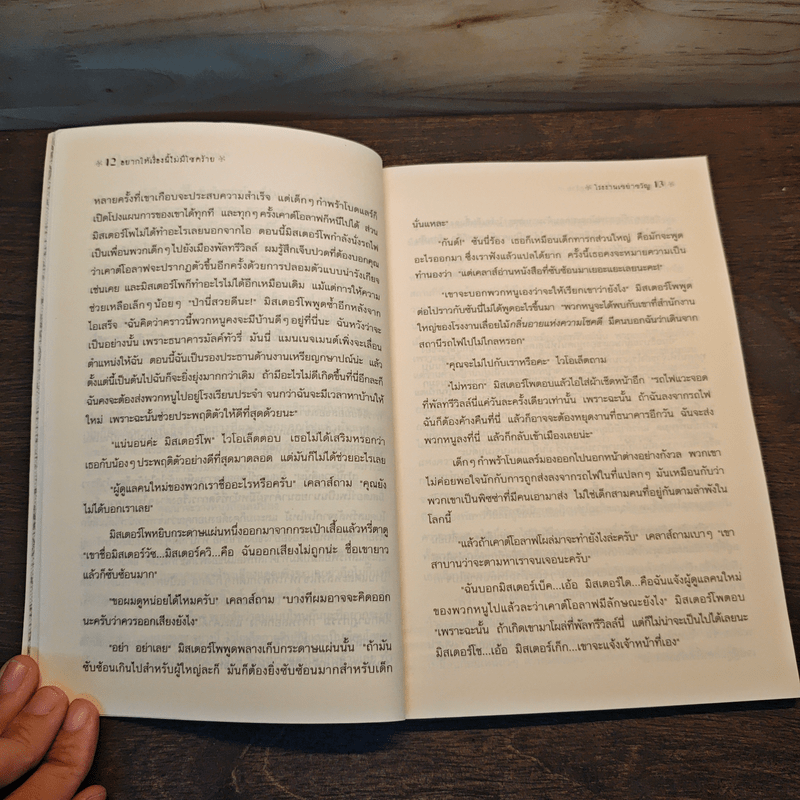 * 12 อยากให้เรื่องนี้ไม่มีโชคร้าย *
หลายครั้งที่เขาเกือบจะประสบความสำเร็จ แต่เด็กๆ กำพร้าโบดแลร์ก็
เปิดโปงแผนการของเขาได้ทุกที และทุกๆ ครั้งเคาต์โอลาฟก็หนีไปได้ ส่วน
มิสเตอร์โพไม่ได้ทำอะไรเลยนอกจากไอ ตอนนี้มิสเตอร์โพกำลังนั่งรถไฟ
เป็นเพื่อนพวกเด็กๆ ไปยังเมืองพัลทรีวิลล์ ผมรู้สึกเจ็บปวดที่ต้องบอกคุณ
ว่าเคาต์โอลาฟจะปรากฏตัวขึ้นอีกครั้งด้วยการปลอมตัวแบบน่ารังเกียจ
เช่นเคย และมิสเตอร์โพก็ทำอะไรไม่ได้อีกเหมือนเดิม แม้แต่การให้ความ
ช่วยเหลือเล็กๆ น้อยๆ "ป่านี่สวยดีนะ!" มิสเตอร์โพพูดซ้ำอีกหลังจาก
ไอเสร็จ "ฉันคิดว่าคราวนี้พวกหนูคงจะมีบ้านดีๆ อยู่ที่นี่นะ ฉันหวังว่าจะ
เป็นอย่างนั้น เพราะธนาคารมัลค์ทัวรี่ มันนี่ แมนเนจเมนต์เพิ่งจะเลื่อน
ตำแหน่งให้ฉัน ตอนนี้ฉันเป็นรองประธานด้านงานเหรียญกษาปณ์น่ะ แล้ว
ตั้งแต่นี้เป็นต้นไปฉันก็จะยิ่งยุ่งมากกว่าเดิม ถ้ามีอะไรไม่ดีเกิดขึ้นที่นี่อีกละก็
ฉันคงจะต้องส่งพวกหนูไปอยู่โรงเรียนประจำ จนกว่าฉันจะมีเวลาหาบ้านให้
ใหม่ เพราะฉะนั้นช่วยประพฤติตัวให้ดีที่สุดด้วยนะ"
"แน่นอนค่ะ มิสเตอร์โพ" ไวโอเล็ตตอบ เธอไม่ได้เสริมหรอกว่า
เธอกับน้องๆ ประพฤติตัวอย่างดีที่สุดมาตลอด แต่มันก็ไม่ได้ช่วยอะไรเลย
"ผู้ดูแลคนใหม่ของพวกเราชื่ออะไรหรือครับ" เคลาส์ถาม "คุณยัง
ไม่ได้บอกเราเลย"
มิสเตอร์โพหยิบกระดาษแผ่นหนึ่งออกมาจากกระเป๋าเสื้อแล้วหรี่ตาดู
"เขาชื่อมิสเตอร์วัซ...มิสเตอร์ควี...คือ ฉันออกเสียงไม่ถูกน่ะ ชื่อเขายาว
แล้วก็ซับซ้อนมาก"
"ขอผมดูหน่อยได้ไหมครับ" เคลาส์ถาม "บางทีผมอาจจะคิดออก
นะครับว่าควรออกเสียงยังไง"
"อย่า อย่าเลย" มิสเตอร์โพพูดพลางเก็บกระดาษแผ่นนั้น "ถ้ามัน
ซับซ้อนเกินไปสำหรับผู้ใหญ่ละก็ มันก็ต้องยิ่งซับซ้อนมากสำหรับเด็ก
* โรงงานเขย่าขวัญ 13 *
นั่นแหละ"
"กันด์!" ซันนี่ร้อง เธอก็เหมือนเด็กทารกส่วนใหญ่ คือมักจะพูด
อะไรออกมา ซึ่งเราฟังแล้วแปลได้ยาก ครั้งนี้เธอคงจะหมายความเป็น
ทำนองว่า "แต่เคลาส์อ่านหนังสือที่ซับซ้อนมาเยอะแยะเลยนะคะ!"
"เขาจะบอกพวกหนูเองว่าจะให้เรียกเขาว่ายังไง" มิสเตอร์โพพูด
ต่อไปราวกับซันนี่ไม่ได้พูดอะไรขึ้นมา "พวกหนูจะได้พบกับเขาที่สำนักงาน
ใหญ่ของโรงงานเลื่อยไม้กลิ่นอายแห่งความโชคดี มีคนบอกฉันว่าเดินจาก
สถานีรถไฟไปไม่ไกลหรอก"
"คุณจะไม่ไปกับเราหรือคะ" ไวโอเล็ตถาม
"ไม่หรอก" มิสเตอร์โพตอบแล้วไอใส่ผ้าเช็ดหน้าอีก "รถไฟแวะจอด
ที่พัลทรีวิลล์นี่แค่วันละครั้งเดียวเท่านั้น เพราะฉะนั้น ถ้าฉันลงจากรถไฟ
ฉันก็ต้องค้างคืนที่นี่ แล้วก็อาจจะต้องหยุดงานที่ธนาคารอีกวัน ฉันจะส่ง
พวกหนูลงที่นี่ แล้วก็กลับเข้าเมืองเลยน่ะ"
เด็กๆ กำพร้าโบดแลร์มองออกไปนอกหน้าต่างอย่างกังวล พวกเขา
ไม่ค่อยพอใจนักกับการถูกส่งลงจากรถไฟในที่แปลกๆ มันเหมือนกับว่า
พวกเขาเป็นพิซซ่าที่มีคนเอามาส่ง ไม่ใช่เด็กสามคนที่อยู่กันตามลำพังใน
โลกนี้
"แล้วถ้าเคาต์โอลาฟโผล่มาจะทำยังไงล่ะครับ" เคลาส์ถามเบาๆ "เขา
สาบานว่าจะตามหาเราจนเจอนะครับ"
"ฉันบอกมิสเตอร์เบ็ค...เอ้อ มิสเตอร์ได...คือฉันแจ้งผู้ดูแลคนใหม่
ของพวกหนูไปแล้วละว่าเคาต์โอลาฟมีลักษณะยังไง" มิสเตอร์โพตอบ
"เพราะฉะนั้น ถ้าเกิดเขามาโผล่ที่พัลทรีวิลล์นี่ แต่ก็ไม่น่าจะเป็นไปได้เลยนะ
มิสเตอร์โช...เอ้อ มิสเตอร์เก็ก...เขาจะแจ้งเจ้าหน้าที่เอง"